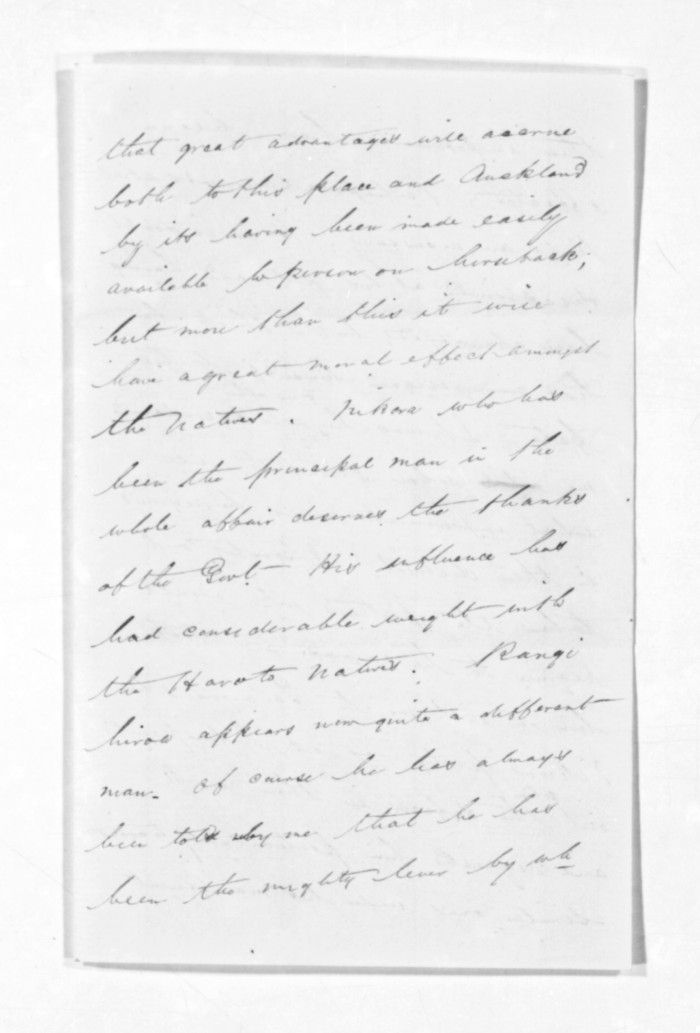 that great advantages will accrue
both to this place and Auckland
by its having been made easily
available to person on horseback;
but more than this it will
have a great moral effect amongst
the Natives. Nikora who has
been the principal man in the
whole affair deserves the thanks
of the Govt. His influence has
had considerable weight with
the Haroto Natives. Rangi
hiroa appears now quite a different
man. Of course he has always
been told by me that he has
been the mighty lever by wh